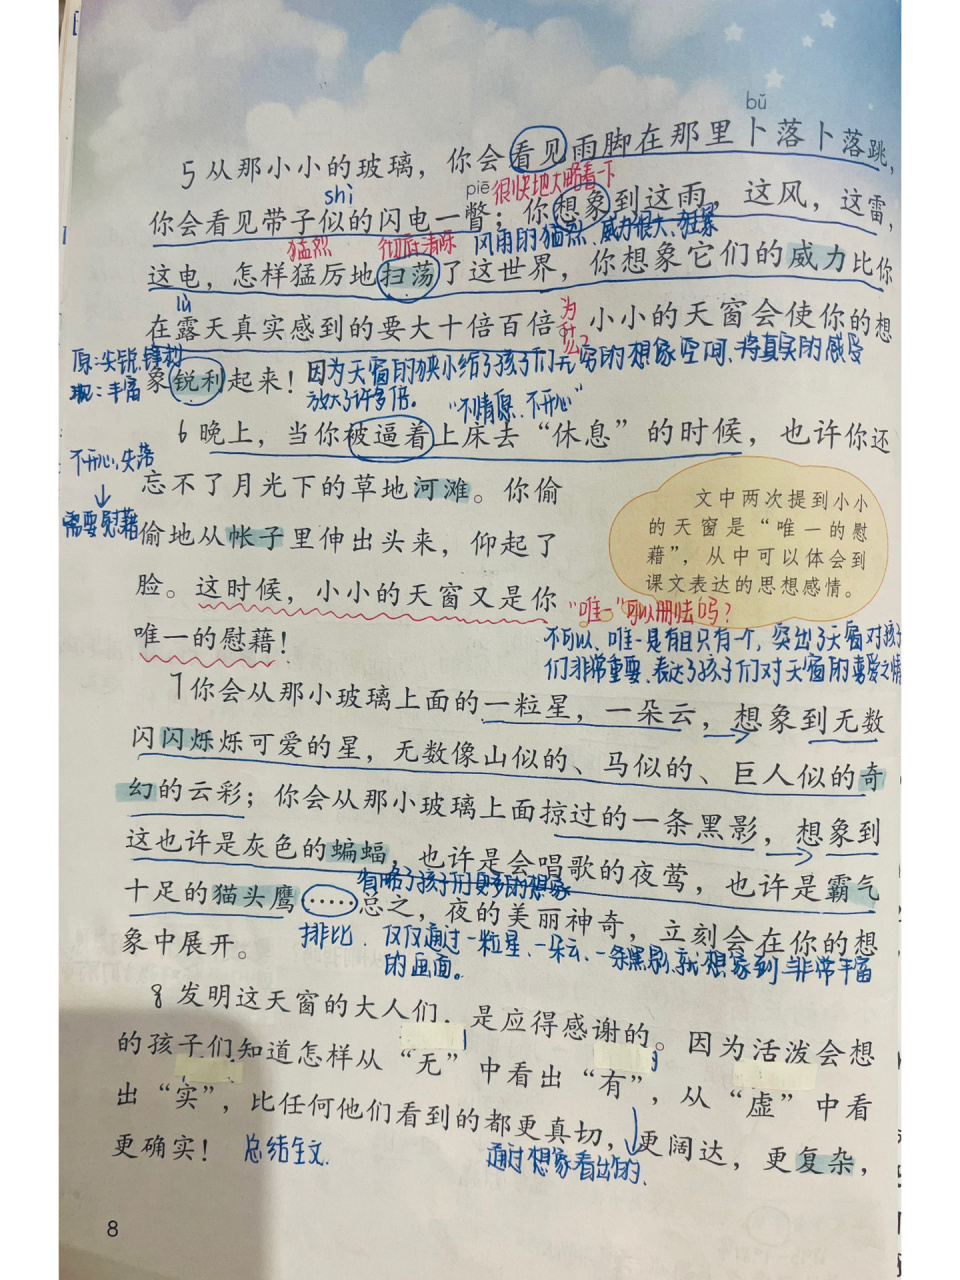 bǔ
5 从那小小的玻璃，你会看见雨脚在那里卜落卜落跳，
shì
piē
很快地大略看一下
你会看见带子似的闪电一瞥；你想象到这雨，这风，这雷，
猛烈
彻底清除
风雨的猛烈、威力很大、狂暴
这电，怎样猛厉地扫荡了这世界，你想象它们的威力比你
lù
在露天真实感到的要大十倍百倍。小小的天窗会使你的想
为什么？
原：尖锐，锋利
现：丰富
象锐利起来！
因为天窗的狭小给了孩子们无穷的想象空间，将真实的感受
放大了许多倍。
“不情愿、不开心”
6 晚上，当你被逼着上床去“休息”的时候，也许你还
不开心，失落
↓
需要慰藉
忘不了月光下的草地河滩。你偷
偷地从帐子里伸出头来，仰起了
脸。这时候，小小的天窗又是你
唯一的慰藉！
文中两次提到小小
的天窗是“唯一的慰
藉”，从中可以体会到
课文表达的思想感情。
“唯一”可以删去吗？
不可以，唯一是有且只有一个，突出了天窗对孩子
们非常重要，表达了孩子们对天窗的喜爱之情
7 你会从那小玻璃上面的一粒星，一朵云，想象到无数
闪闪烁烁可爱的星，无数像山似的、马似的、巨人似的奇
幻的云彩；你会从那小玻璃上面掠过的一条黑影，想象到
这也许是灰色的蝙蝠，也许是会唱歌的夜莺，也许是霸气
省略了孩子们更多的想象
十足的猫头鹰……总之，夜的美丽神奇，立刻会在你的想
象中展开。
排比．仅仅通过一粒星、一朵云、一条黑影，就想象到非常丰富
的画面。
8 发明这天窗的大人们，是应得感谢的。因为活泼会想
的孩子们知道怎样从“无”中看出“有”，从“虚”中看
出“实”，比任何他们看到的都更真切，更阔达，更复杂，
更确实！
总结全文．
通过想象看出的．
8